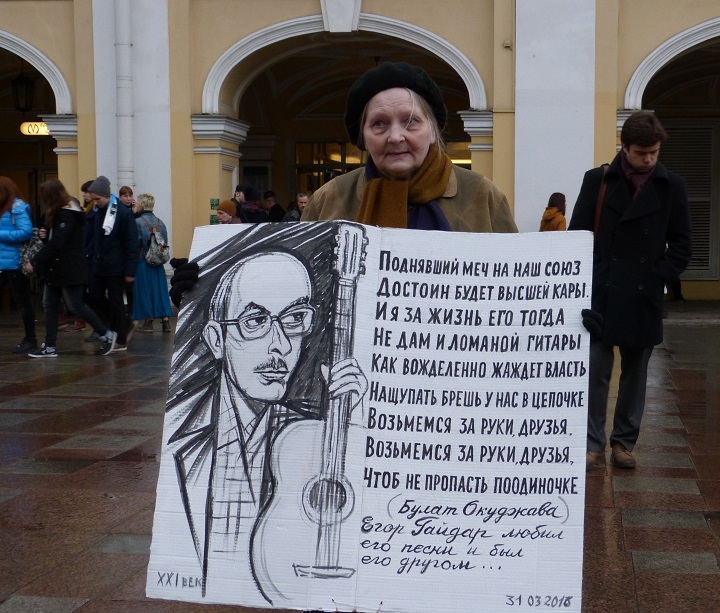 Поднявший меч на наш союз
Достоин будет высшей кары.
И я за жизнь его тогда
Не дам и ломаной гитары
Как вожделенно жаждет власть
Нащупать брешь у нас в цепочке
Возьмемся за руки, друзья.
Возьмемся за руки, друзья,
Чтоб не пропасть поодиночке
(Булат Окуджава)
Егор Гайдар любил
его песни и был
его другом...
XXI век
31 03 2018